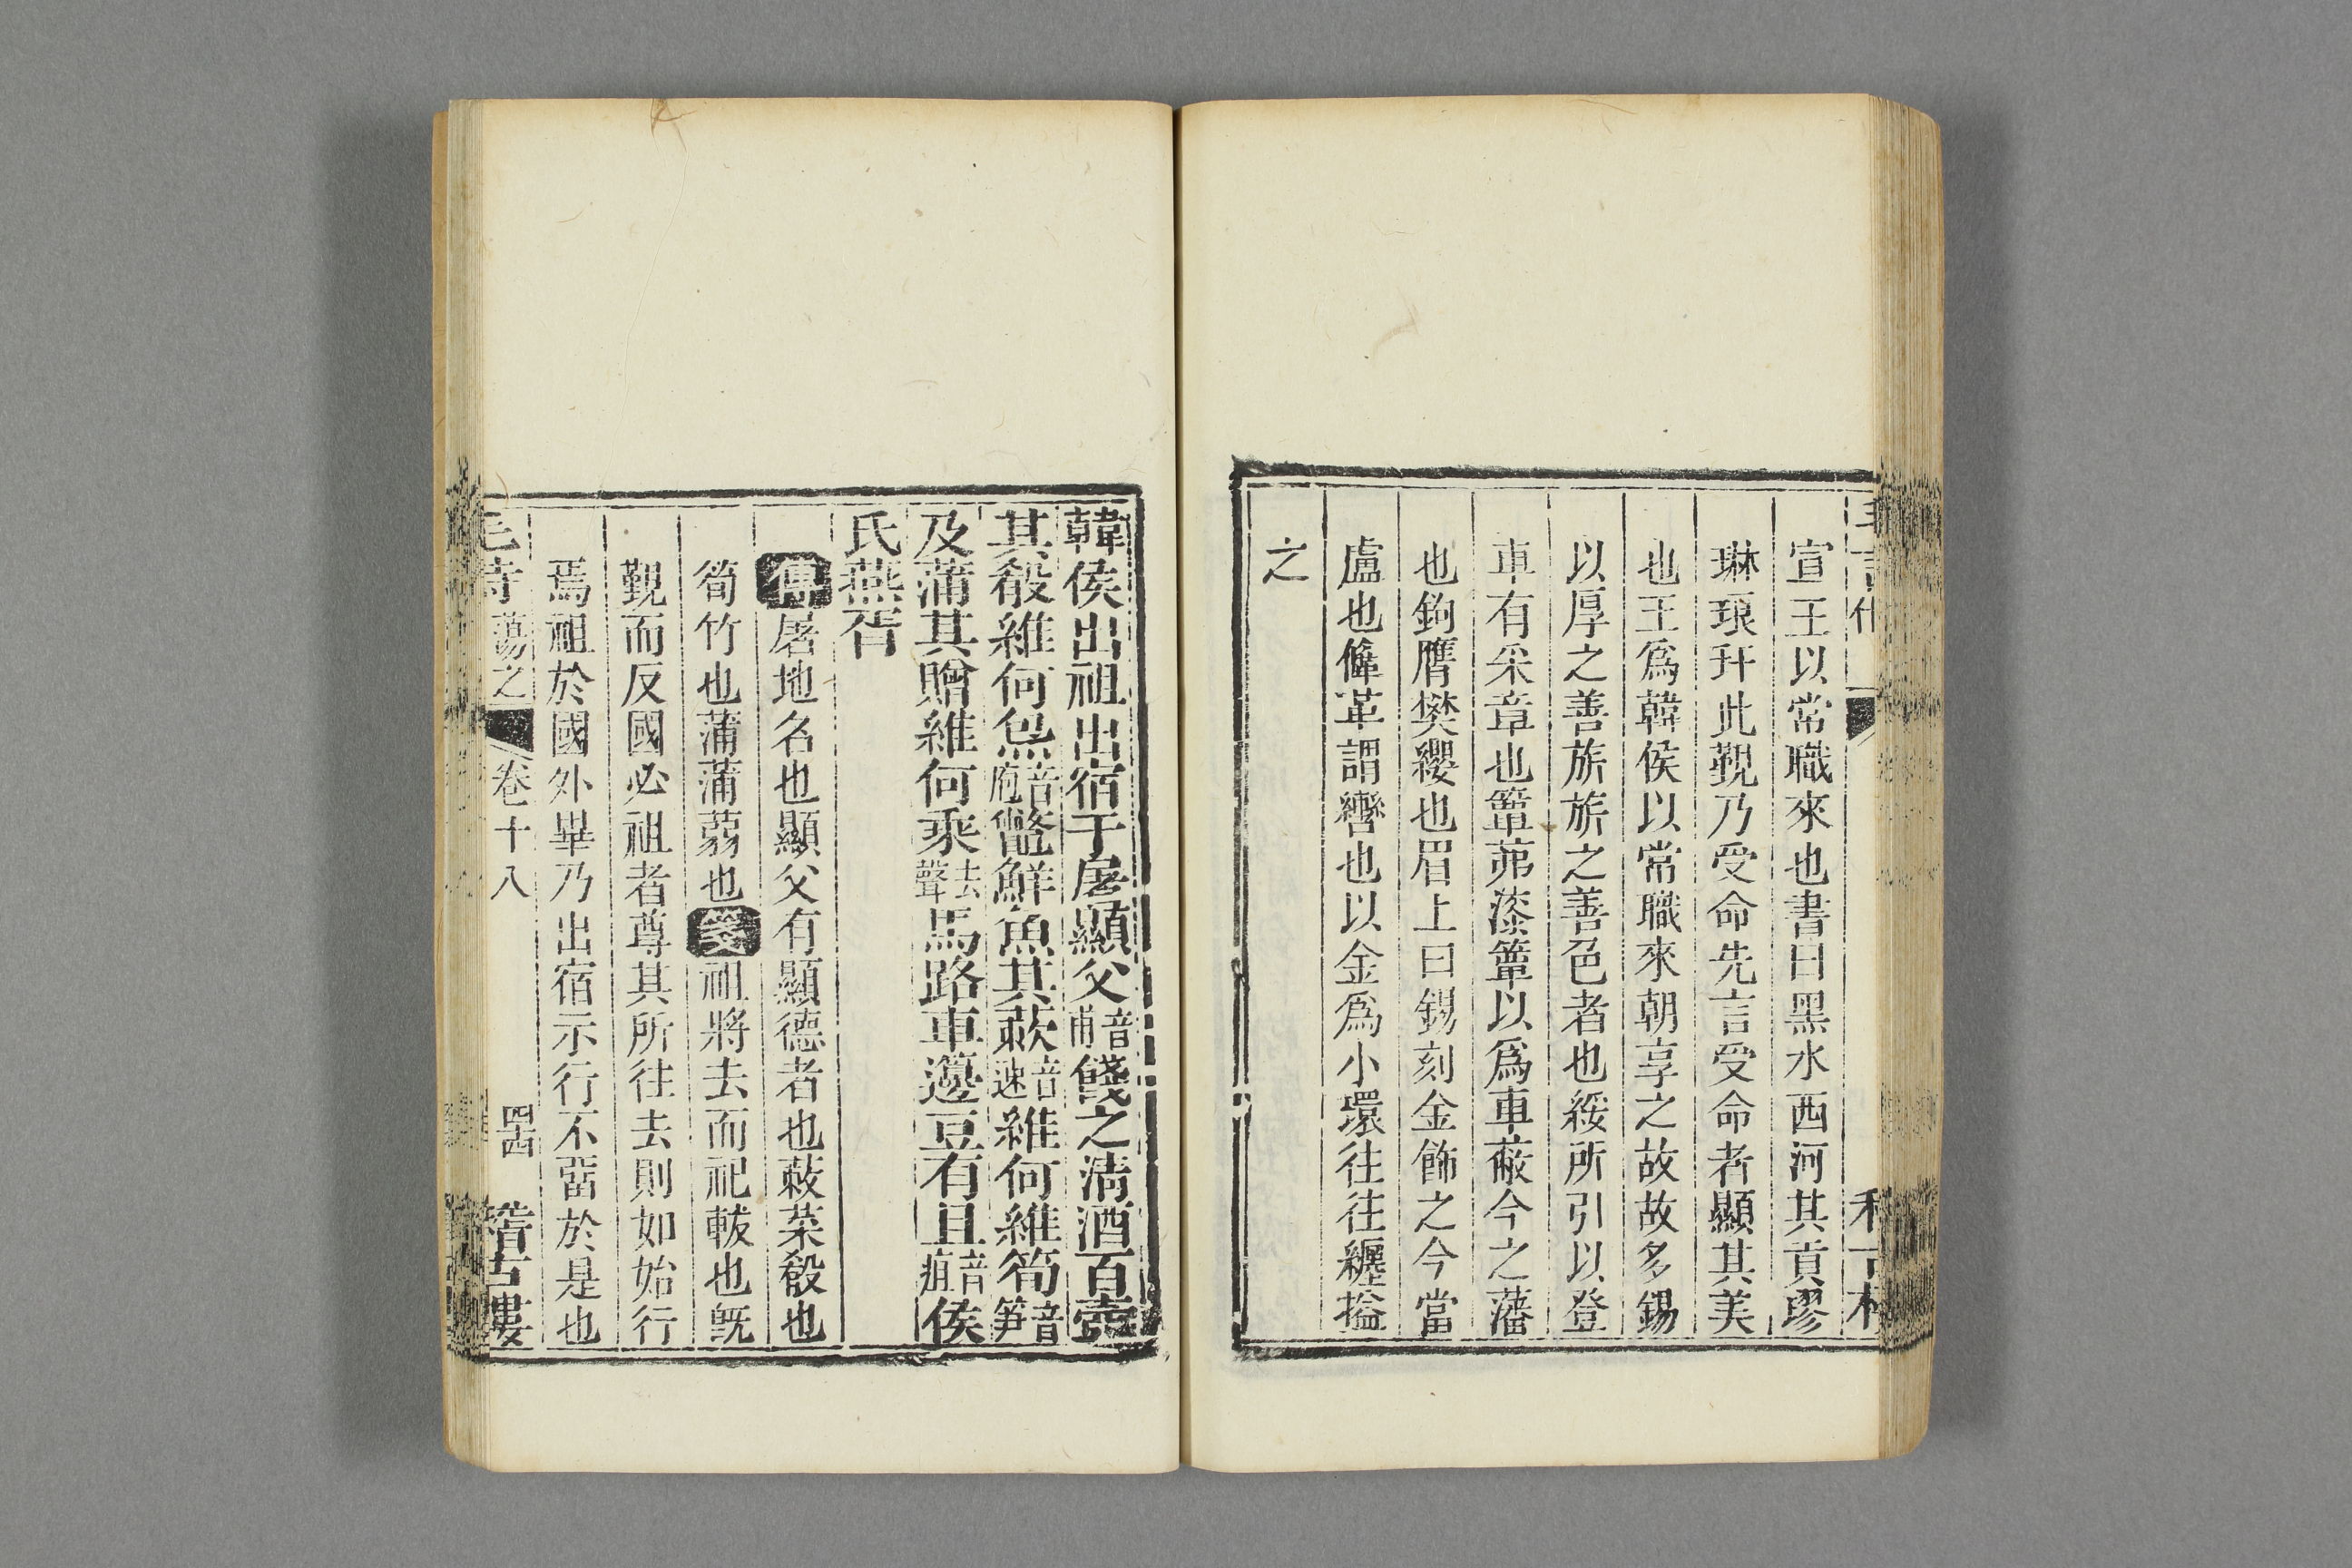 宣王以常職來也書曰黑水西河其貢璆
琳琅玕此覲乃受命先言受命者顯其美
也王爲韓侯以常職來朝享之故故多錫
以厚之善旂旂之善色者也綏所引以登
車有采章也簟茀漆簟以爲車蔽今之藩
也鉤膺樊纓也眉上曰錫刻金飾之今當
盧也鞗革謂轡也以金爲小環往往纏搤
之
韓侯出祖出宿于屠顯父音甫餞之淸酒百壺
其殽維何炰音庖鼈鮮魚其蔌音速維何維筍音笋
及蒲其贈維何乘去聲馬路車籩豆有且音疽侯
氏燕胥
傳屠地名也顯父有顯德者也蔌菜殽也
筍竹也蒲蒲蒻也箋祖將去而祀軷也旣
覲而反國必祖者尊其所往去則如始行
焉祖於國外畢乃出宿示行不畱於是也
毛詩 蕩之 卷十八 四四 稽古樓